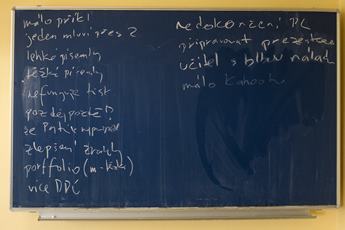 málo příkl
jeden mluví přes 2
lehké písemky
těžké písemky
nefunguje tisk
pozdější
že Patrik
zlepšení známky
portfolio (m-
více DDÚ
nedokončení PL
připravovat prezentace
učitel s blbou náladou
málo Kahootu